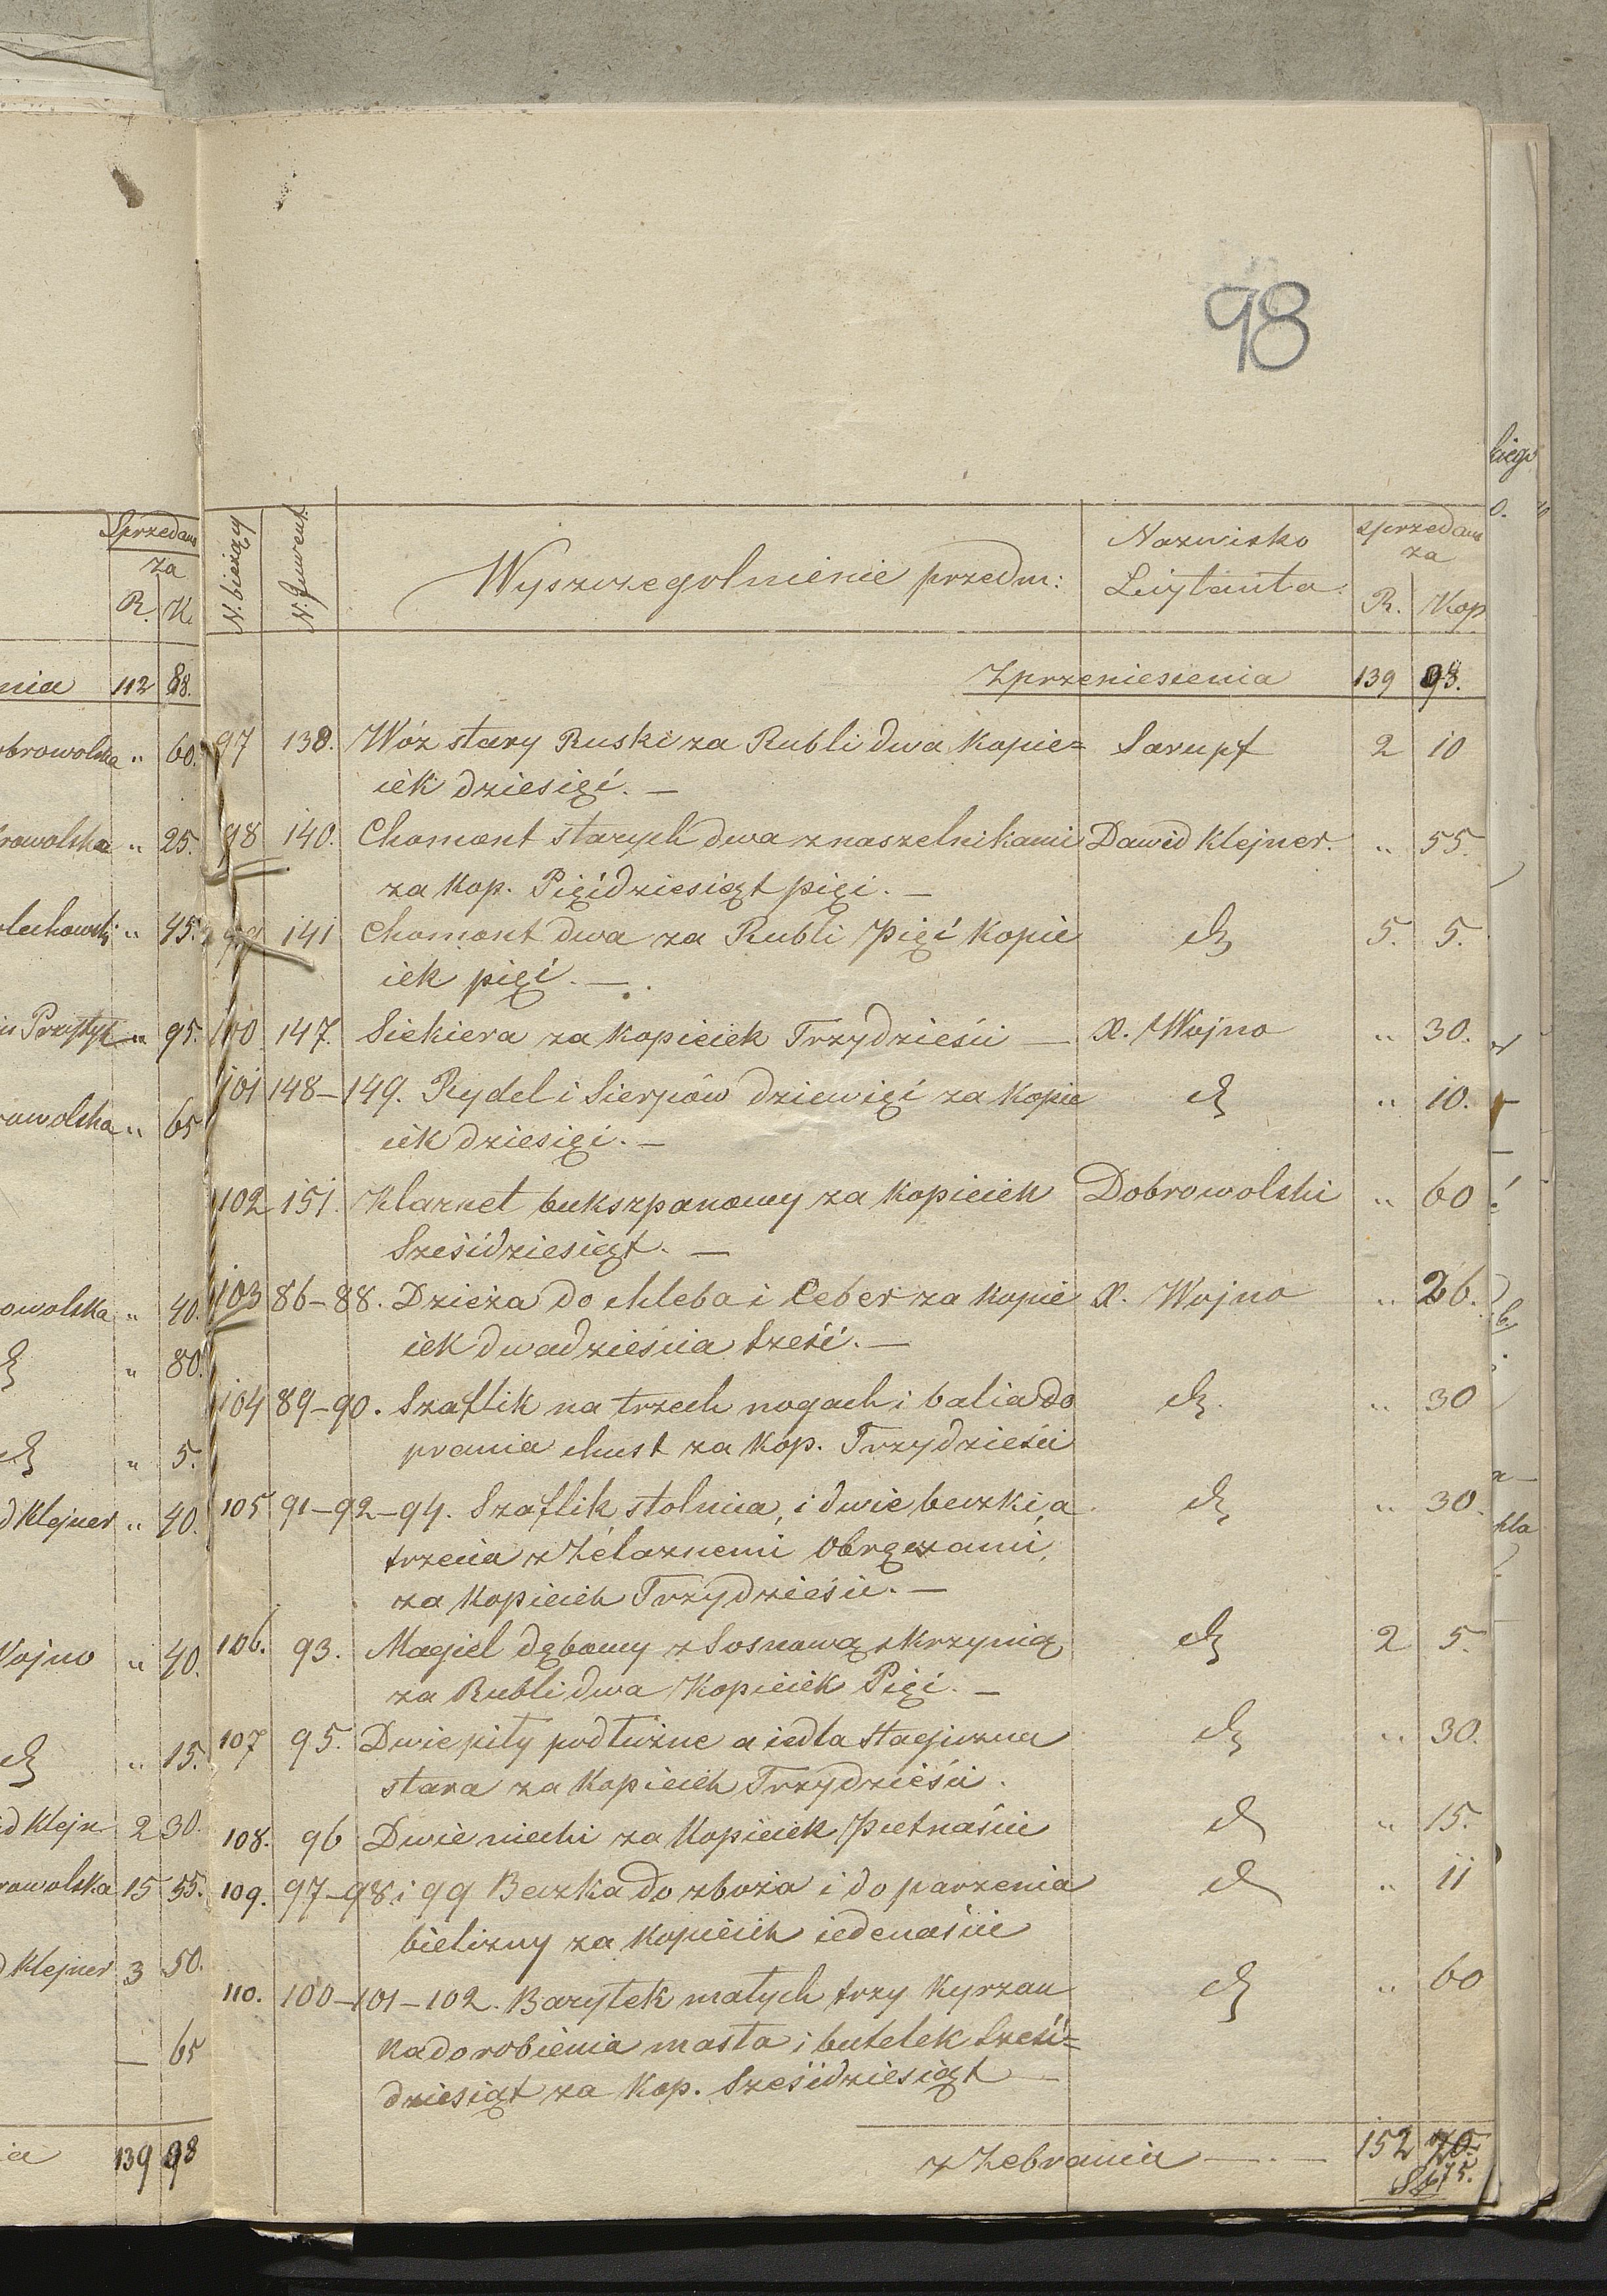 98
Sprzedano
za
R. K.
nia 112 88.
obrowolska „ 60.
rowolska „ 25.
lechowski „ 45.
„ 95.
rowolska „ 65
owolska „ 40.
„ 80.
„ 5.
d Klejner „ 40.
Wojno „ 40.
„ 15.
id Klejn 2 30.
rowolska 15 55.
d Klejner 3 50.
— 65
ia 139 98
N. bieżący N. Inwent. Wyszczegolnienie przedm: Nazwisko Licytanta. sprzedano za
R. Kop
Zprzeniesienia 139 98.
97 138. Wóz stary Ruski za Rubli dwa kopie= Sarupf 2 10
iek dziesięć. —
98 140. Chomont starych dwa z naszelnikami Dawid Klejner. „ 55.
za kop. Pięćdziesiąt pięć. —
99 141 Chomont dwa za Rubli Pięć kopie dt 5. 5.
iek pięć. —.
100 147. Siekiera za kopieiek Trzydzieści — X. Wojno „ 30.
101 148–149. Rydel i Sierpów dziewięć za kopie dt „ 10.
iek dziesięć. —
102 151. Klarnet bukszpanowy za kopieiek Dobrowolski „ 60
Sześćdziesiąt. —
103 86–88. Dzieża do chleba i Ceber za kopie X. Wojno „ 26.
iek dwadzieścia sześć. —
104 89–90. Szaflik na trzech nogach i balia do dt. „ 30
prania chust za kop. Trzydzieści
105 91–92–94. Szaflik stolnica, i dwie beczki, a dt „ 30.
trzecia z Żelaznemi Obręczami,
za kopieiek Trzydzieście. —
106. 93. Magiel dębowy z Sosnową skrzynią dt 2 5.
za Rubli dwa kopieiek Pięć. —
107 95. Dwie piły podłużne a iedla Stagiczna dt „ 30.
stara za kopieiek Trzydzieści.
108. 96 Dwie niecki za kopieiek Pietnaście dt „ 15.
109. 97–98 i 99 Beczka do zboża i do parzenia dt „ 11
bielizny za kopieiek iedenaście
110. 100–101–102. Baryłek małych trzy Kyrzan dt „ 60
ka do robienia masła i butelek Sześć=
dziesiąt za Kop. Sześćdziesiąt —
z Zebrania —.— 152 70.
75.